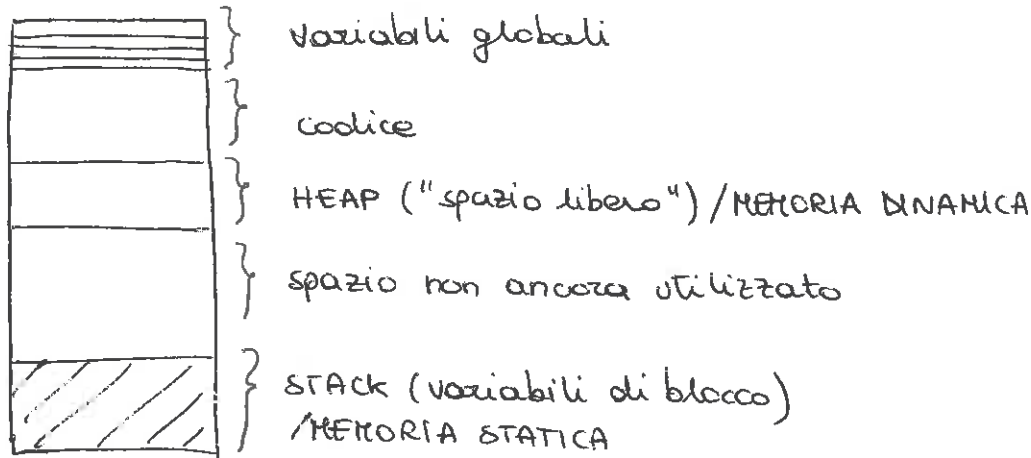 variabili globali
codice
HEAP ("spazio libero") / MEMORIA DINAMICA
spazio non ancora utilizzato
STACK (variabili di blocco)
/MEMORIA STATICA